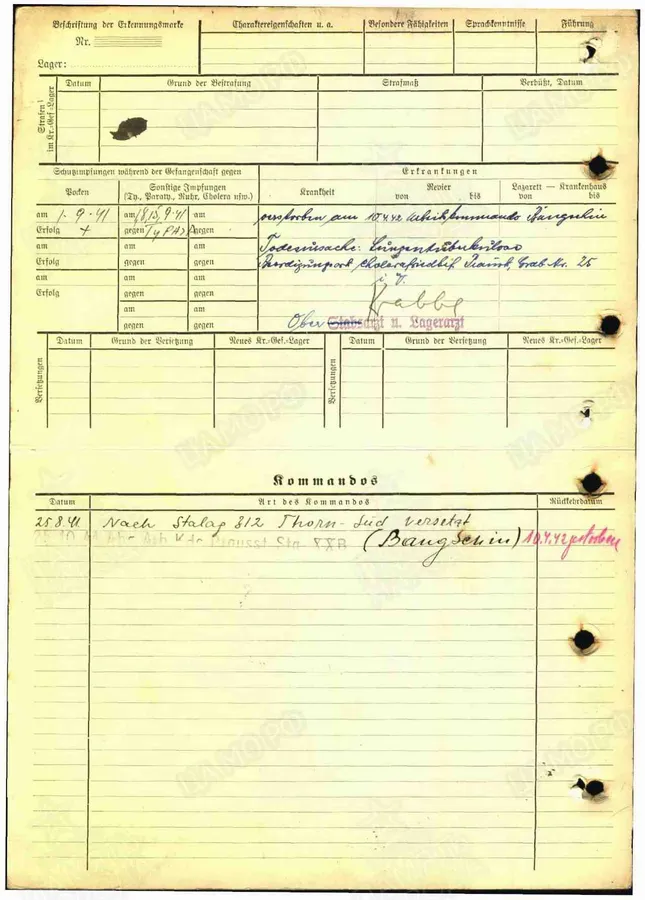 Beschriftung der Erkennungsmarke
Nr.
Lager:
Charaktereigenschaften u. a.
Besondere Fähigkeiten
Sprachkenntnisse
Führung
Strafen im Kr.-Gef.-Lager
Datum
Grund der Bestrafung
Strafmaß
Verbüßt, Datum
Schutzimpfungen während der Gefangenschaft gegen
Erkrankungen
Pocken
Sonstige Impfungen
(Ty., Paraty., Ruhr, Cholera usw.)
Krankheit
Revier
von bis
Lazarett — Krankenhaus
von bis
am 1.9.41 am 1.8.15.9.41 am
verstorben am 10.4.42 Arbeitskommando Bangschin
Erfolg + gegen Ty PA gegen
am am am
Todesursache: Lungentuberkulose
Erfolg gegen gegen
Beerdigungsort, Cholerafriedhf. Praust, Grab Nr. 25
am am am
i. V.
Erfolg gegen gegen
Krabbe
am am
gegen gegen
Ober Stabsarzt u. Lagerarzt
Versetzungen
Datum
Grund der Versetzung
Neues Kr.-Gef.-Lager
Versetzungen
Datum
Grund der Versetzung
Neues Kr.-Gef.-Lager
Kommandos
Datum
Art des Kommandos
Rückkehrdatum
25.8.41 Nach Stalag 312 Thorn-Süd versetzt
Arb. Kdo Praust Sta. XXB (Bangschin) 10.4.42 gestorben
ЦАМО РФ
ЦАМО РФ
ЦАМО РФ
ЦАМО РФ
ЦАМО РФ
ЦАМО РФ